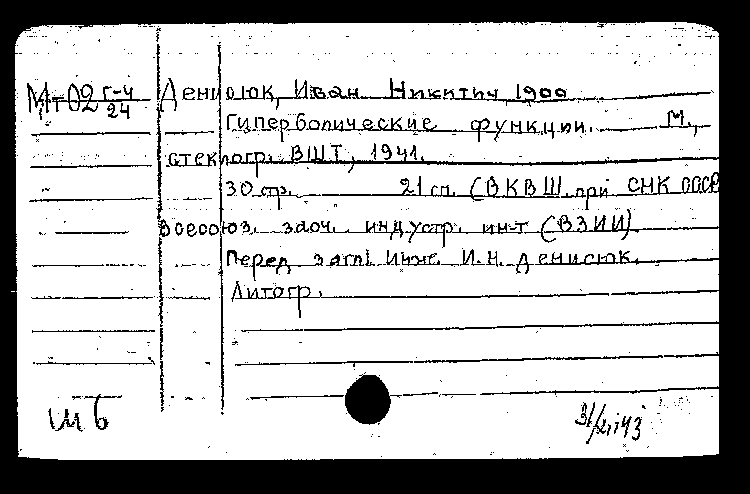 М-02 Г-4/24 Денисюк, Иван Никитич 1900
Гиперболические функции. М.,
стеклогр. ВШТ, 1941.
30 стр. 21 см. (ВКВШ при СНК СССР
Всесоюз. заоч. индустр. ин-т (ВЗИИ)
Перед загл. Инж. И.Н. Денисюк.
Литогр.